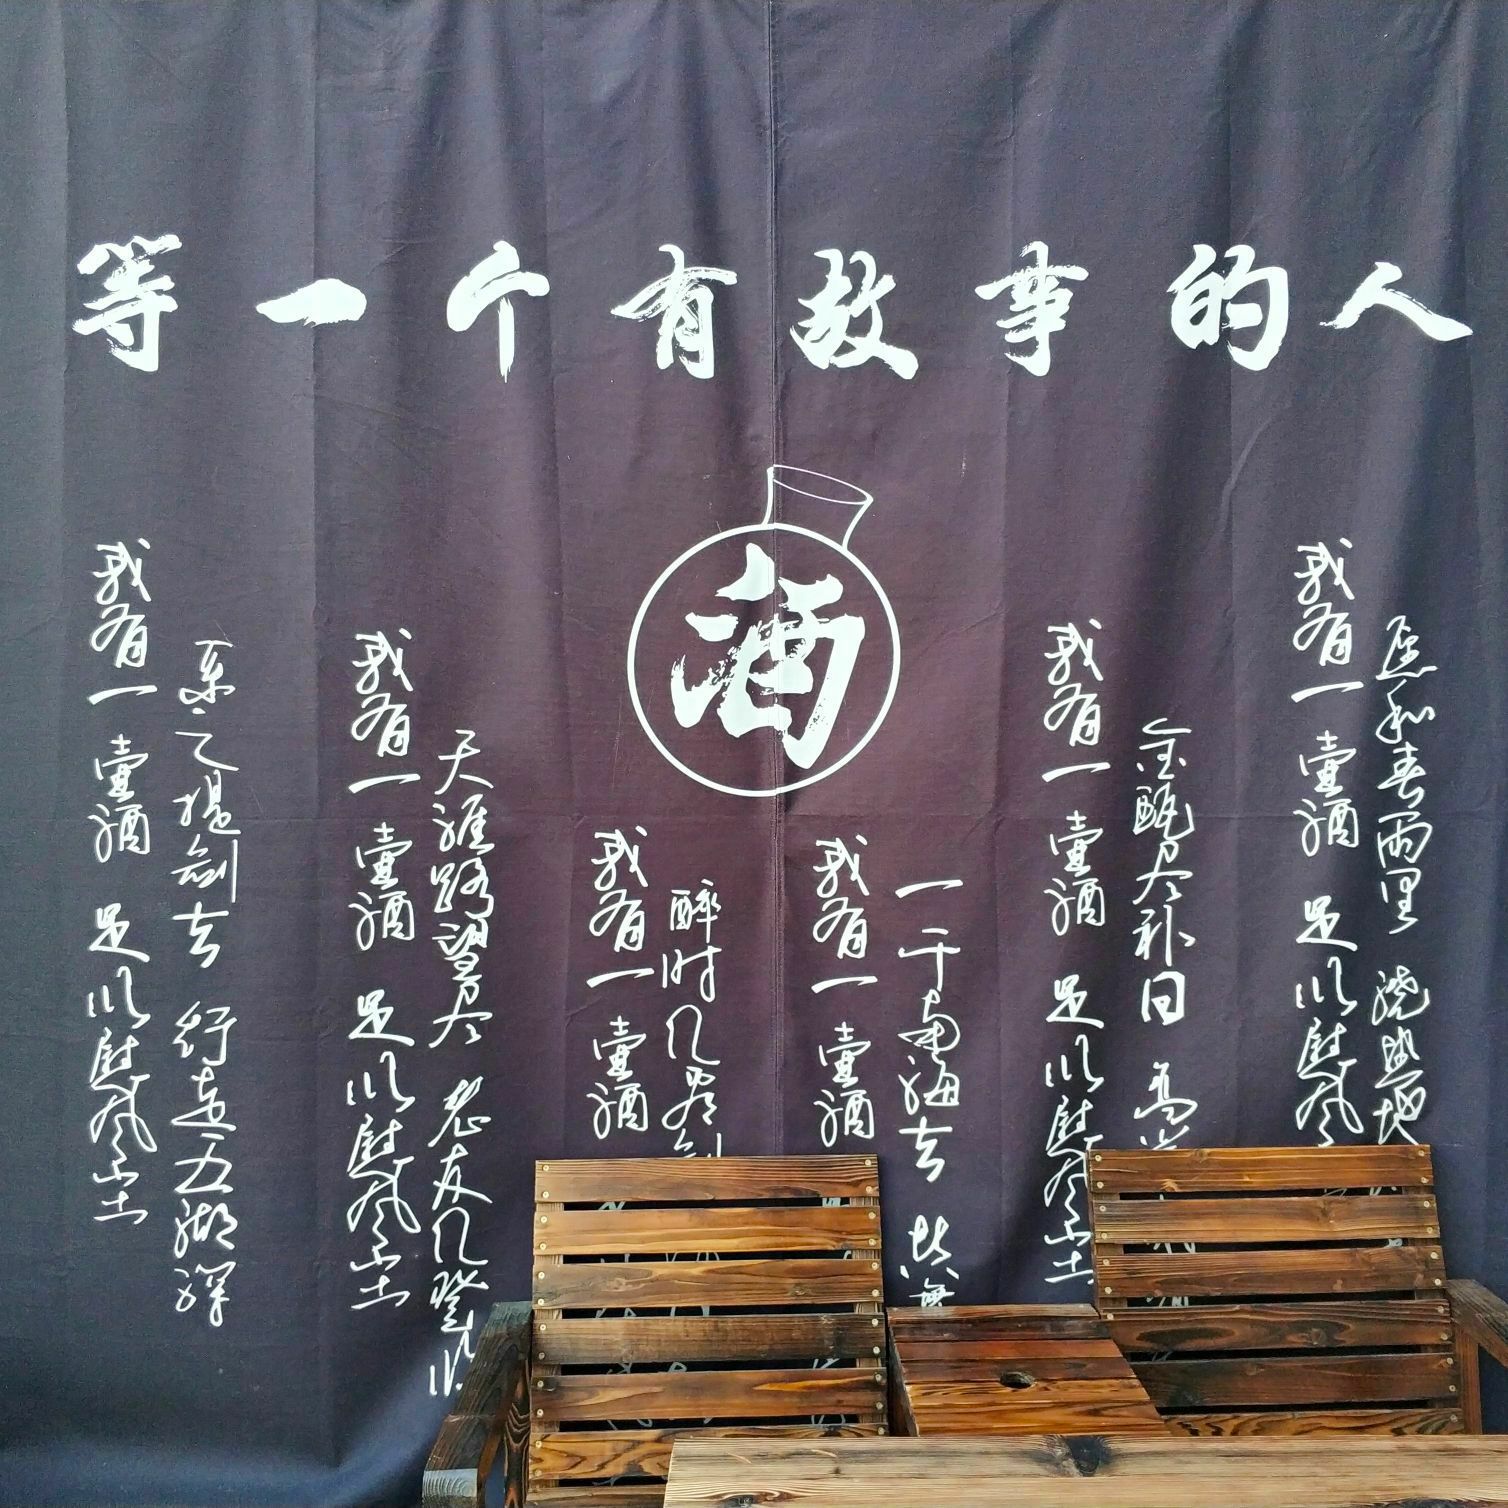 等一个有故事的人
酒
我有一壶酒 足以慰风尘
之提剑去 行走五湖深
我有一壶酒 足以慰风尘
天涯路望尽 老友几登临
我有一壶酒
醉时几
我有一壶酒
一干南海去
我有一壶酒 足以慰风尘
金瓯尽补日
我有一壶酒 足以慰风
和春雨里 浇